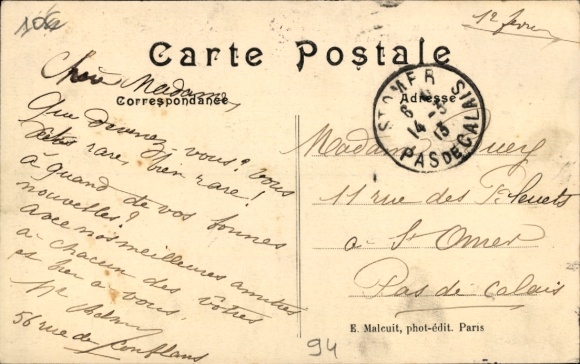 106
12 février
Carte Postale
Correspondance
Adresse
ST OMER
8
14 - 3
13
PAS DE CALAIS
Chère Madame,
Que devenez-vous? Vous
êtes rare bien rare!
à quand de vos bonnes
nouvelles?
avec nos meilleures amitiés
à chacun des vôtres
et bien à vous.
56 rue de Conflans
Madame
11 rue des
a St Omer
Pas de Calais
E. Malcuit, phot-édit. Paris
94